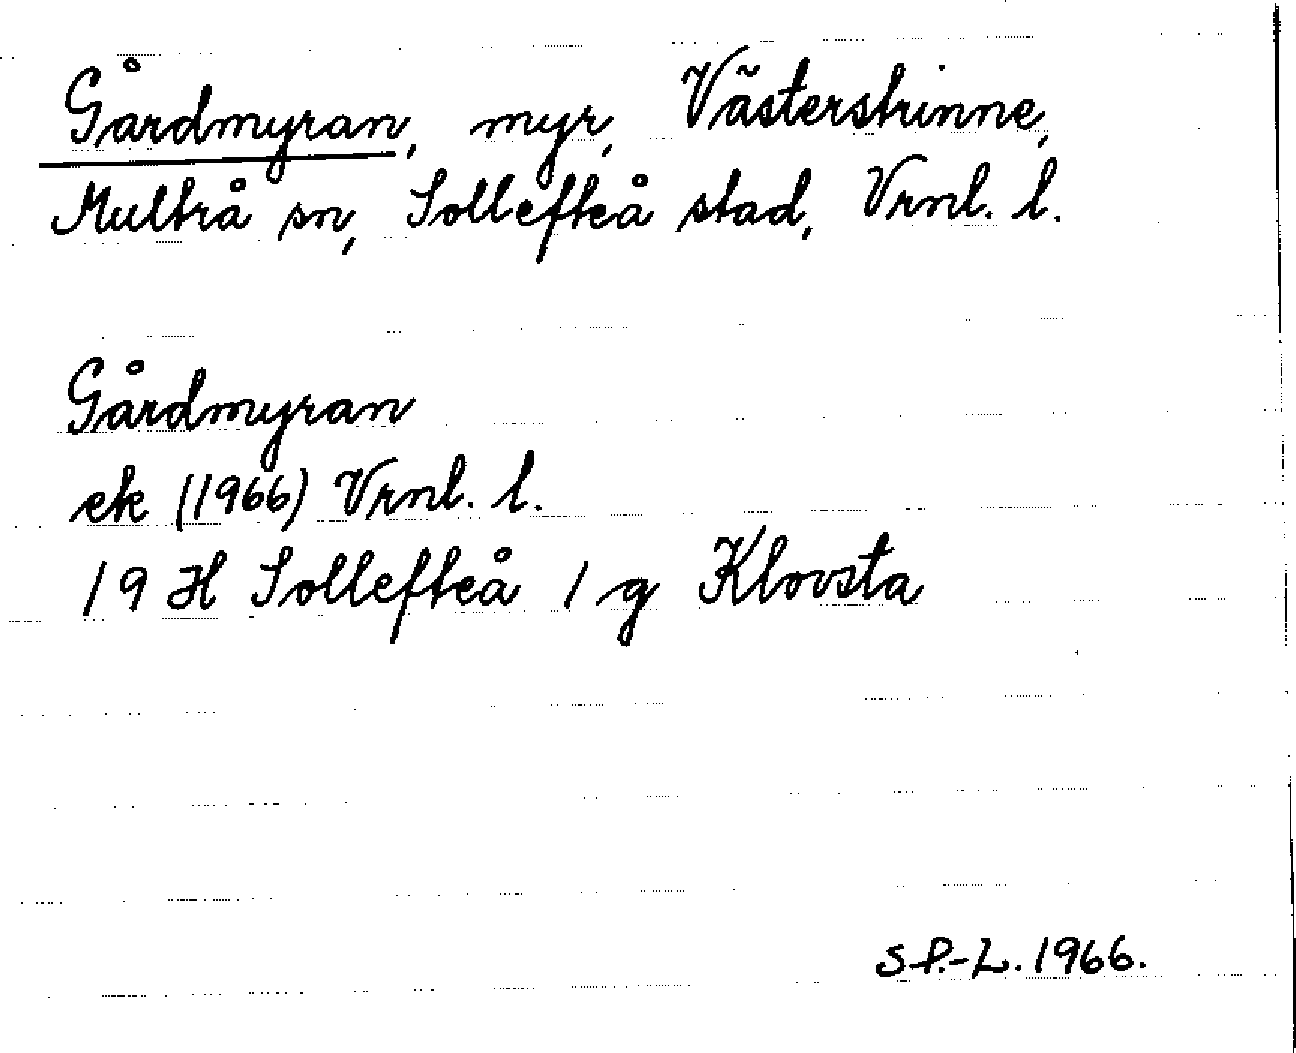 Gårdmyran, myr, Västerstrinne,
Multrå sn, Sollefteå stad, Vrnl. l.
Gårdmyran
ek (1966) Vrnl. l.
19 H Sollefteå 1 g Klovsta
S.P.-L. 1966.